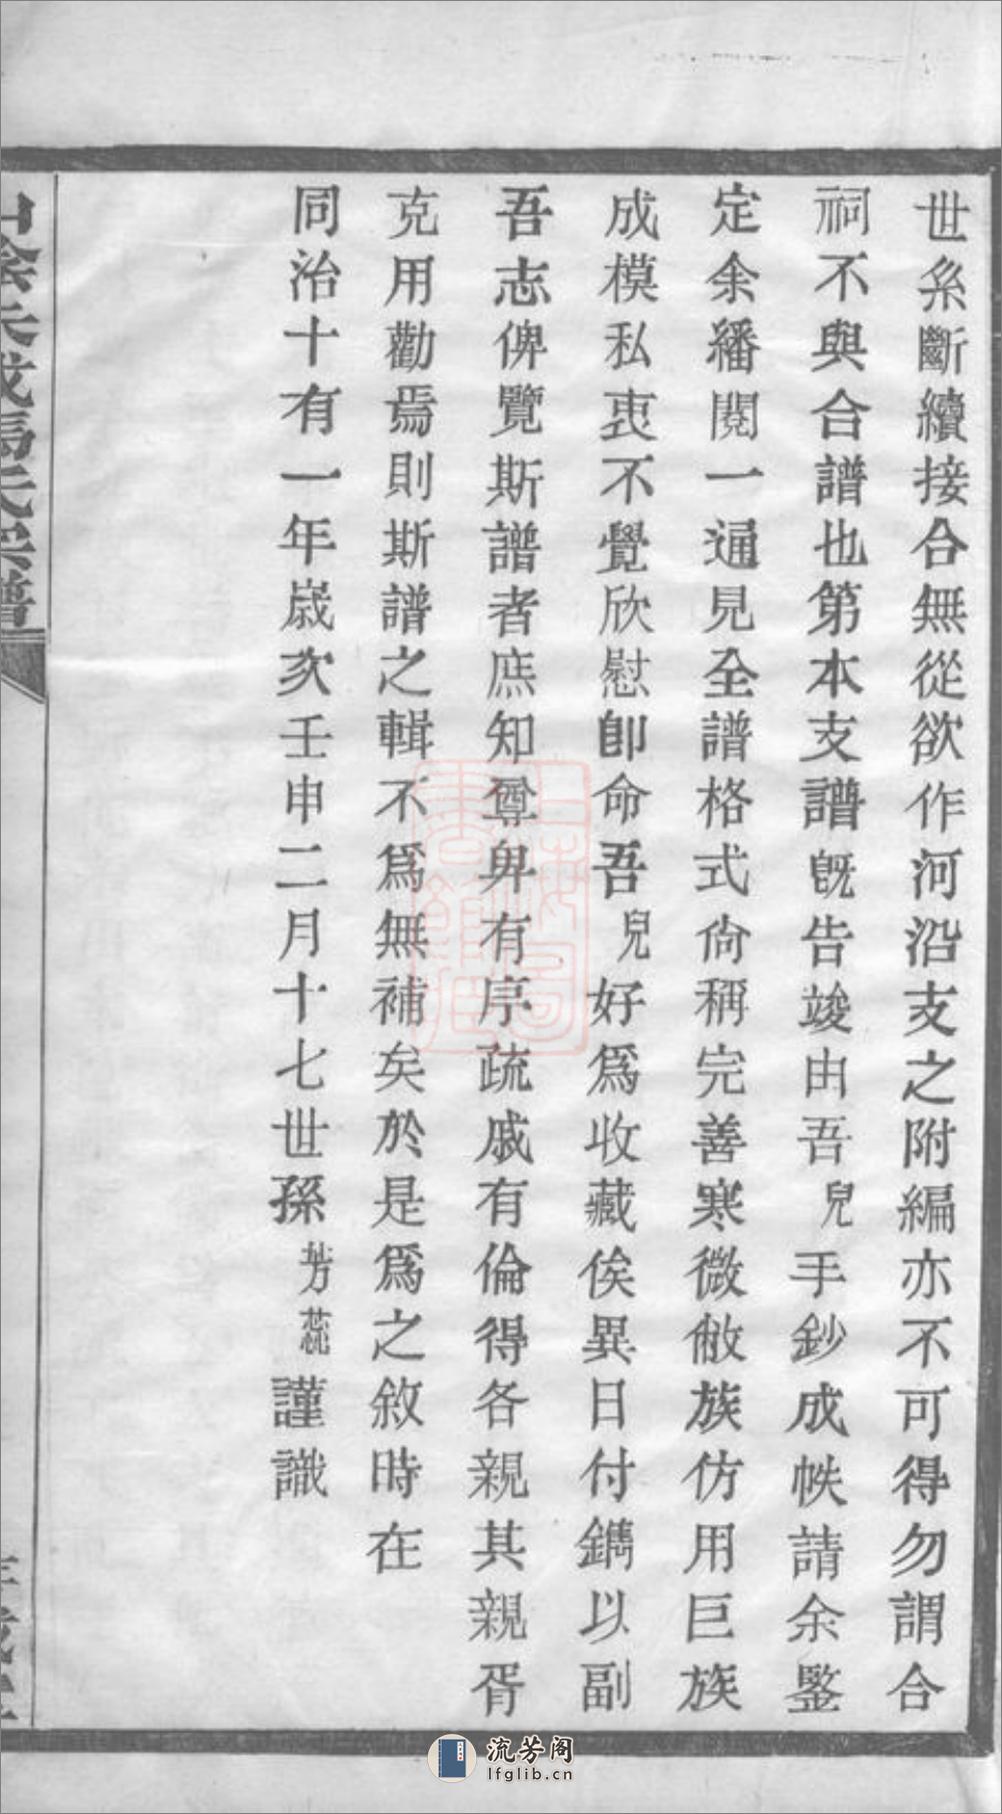 世系斷續接合無從欲作河沿支之附編亦不可得勿謂合
祠不與合譜也第本支譜既告竣由吾兒手鈔成帙請余鑒
定余繙閱一通見全譜格式尙稱完善寒微敝族仿用巨族
成模私衷不覺欣慰卽命吾兒好爲收藏俟異日付鐫以副
吾志俾覽斯譜者庶知尊卑有序疏戚有倫得各親其親胥
克用勸焉則斯譜之輯不爲無補矣於是爲之敘時在
同治十有一年歲次壬申二月十七世孫芳蕋謹識
流芳阁
lfglib.cn